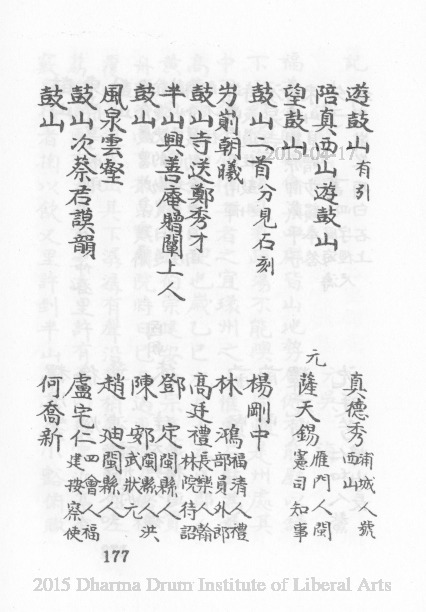 遊鼓山有引 真德秀浦城人號西山
陪真西山遊鼓山
元
望鼓山 薩天錫雁門人閩憲司知事
鼓山二首分見石刻 楊剛中
屴崱朝曦 林鴻福清人禮部員外郎
鼓山寺送鄭秀才 高廷禮長樂人翰林院待詔
半山興善庵贈闡上人 鄧定閩縣人
鼓山 陳 閩縣人洪武狀元
風泉雲壑 趙迪閩縣人
鼓山次蔡君謨韻 盧宅仁四會人福建按察使
鼓山 何喬新
177
2015-04-17
2015 Dharma Drum Institute of Liberal Arts